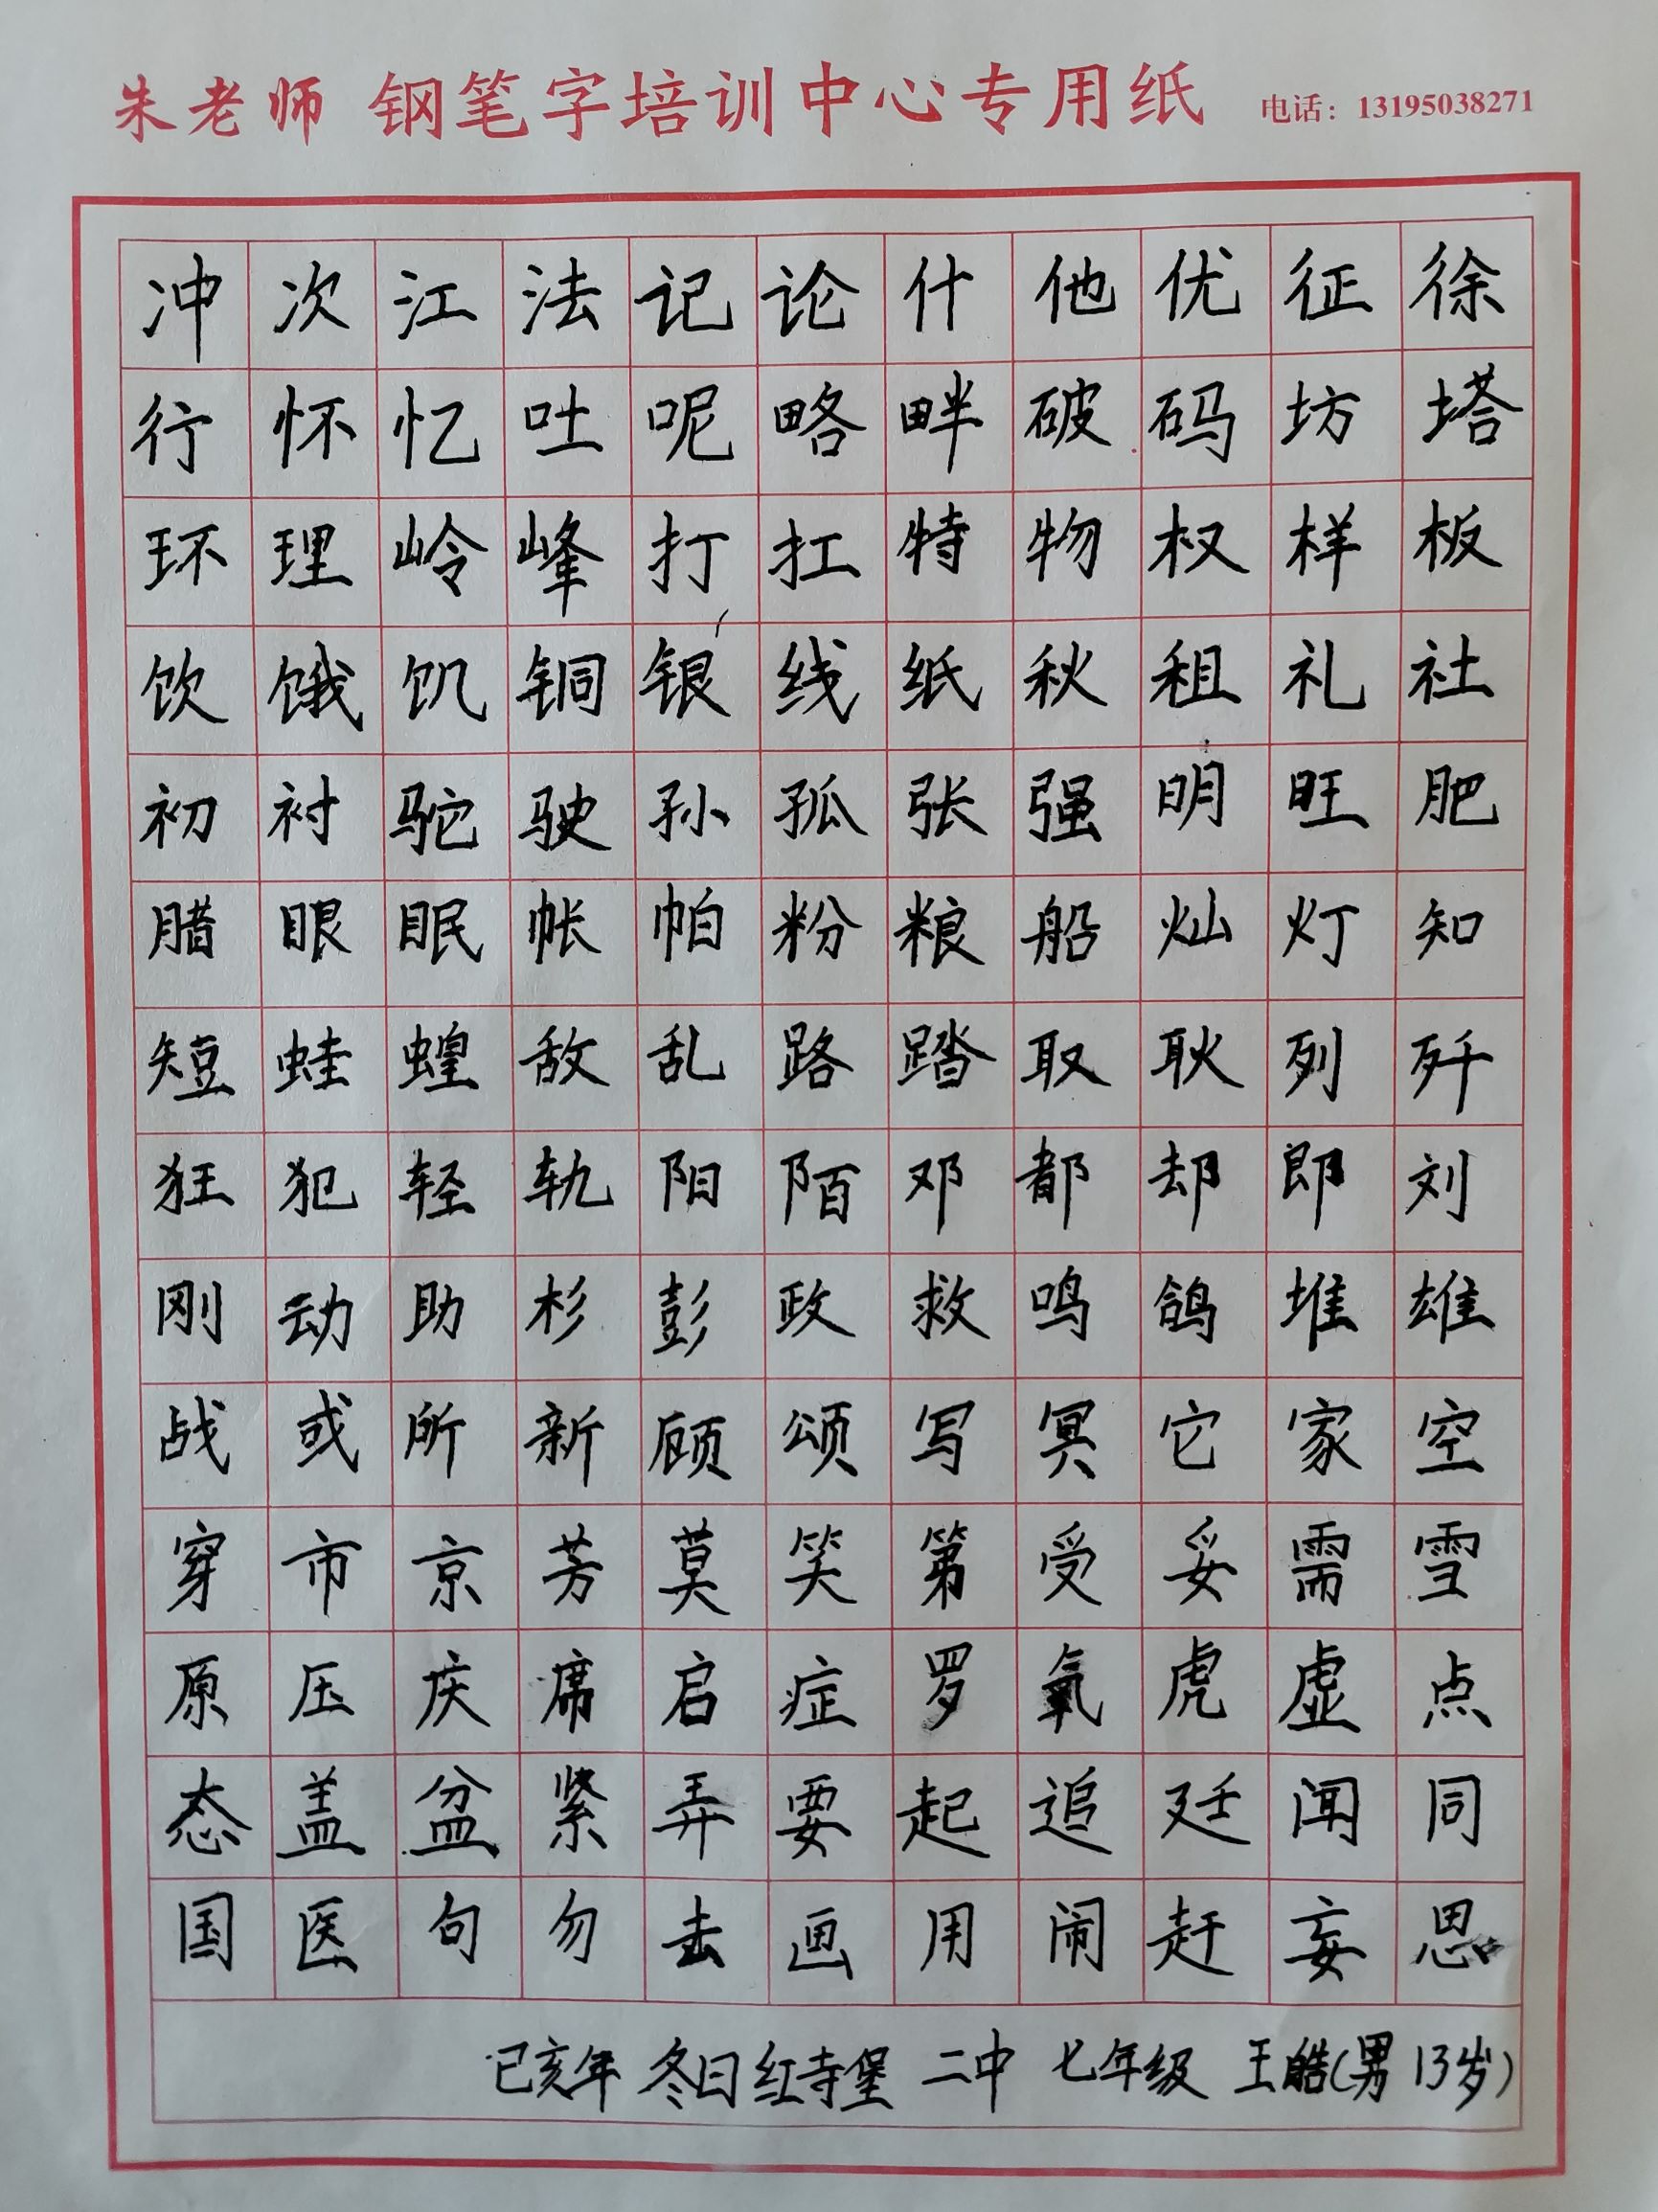 朱老师 钢笔字培训中心专用纸 电话：13195038271
冲次江法记论什他优征徐
行怀忆吐呢略畔破码坊塔
环理岭峰打扛特物权样板
饮饿饥铜银线纸秋租礼社
初衬驼驶孙孤张强明旺肥
腊眼眠帐帕粉粮船灿灯知
短蛙蝗敌乱路踏取耿列歼
狂犯轻轨阳陌邓都却郎刘
刚动助杉彭政救鸣鸽堆雄
战或所新顾颂写冥它家空
穿市京芳莫笑第受妥需雪
原压庆席启症罗氧虎虚点
态盖盆紧弄要起追廷闻同
国医句勿击画用闹赶妄思
已亥年 冬日红寺堡 二中 七年级 王皓(男 13岁)